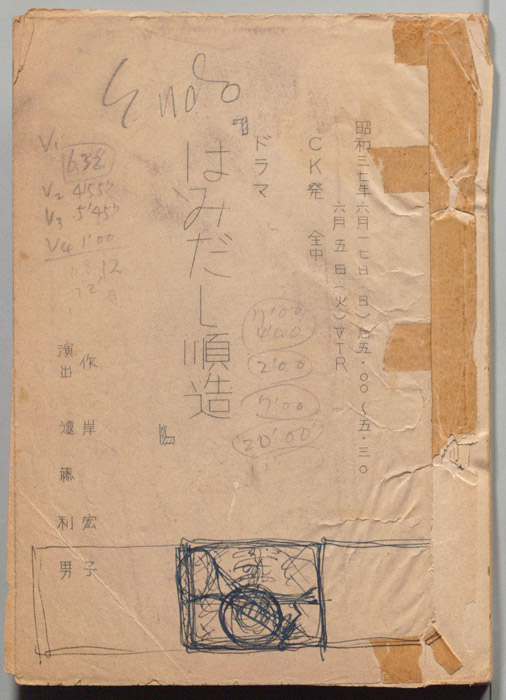 Endo
昭和三七年六月一七日(日)后五・〇〇~五・三〇
六月五日(火)VTR
CK発 全中
ドラマ
『はみだし順造』
作 岸 宏子
演出 遠藤利男
V1
6.32
V2 4'55"
V3 5'45"
V4 1'00
12
7'00
4'00
2'00
7'00
20'00"